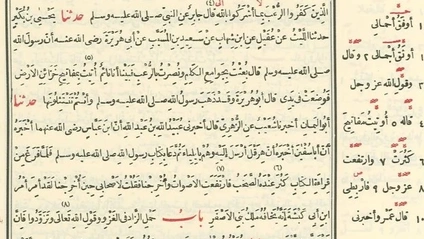 الَّذِينَ كَفَرُوا الرُّعْبَ بِمَا أَشْرَكُوا بِاللهِ قَالَ جَابِرٌ عَنِ النَّبِيِّ صلى الله عليه وسلم حدثنا يَحْيَى بْنُ بُكَيْرٍ
حدثنا اللَّيْثُ عَنْ عُقَيْلٍ عَنِ ابْنِ شِهَابٍ عَنْ سَعِيدِ بْنِ الْمُسَيَّبِ عَنْ أَبِي هُرَيْرَةَ رضى الله عنه أَنَّ رسولَ الله
صلى الله عليه وسلم قال بُعِثْتُ بِجَوَامِعِ الْكَلِمِ وَنُصِرْتُ بِالرُّعْبِ فَبَيْنَا أَنَا نَائِمٌ أُتِيتُ بِمَفَاتِيحِ خَزَائِنِ الْأَرْضِ
فَوُضِعَتْ فِي يَدِي قال أبو هريرة وَقَدْ ذَهَبَ رسولُ الله صلى الله عليه وسلم وَأَنْتُمْ تَنْتَثِلُونَهَا حدثنا
أَبُو الْيَمَانِ أخبرنا شُعَيْبٌ عَنِ الزُّهْرِيِّ قال أخبرني عُبَيْدُ اللهِ بْنُ عَبْدِ اللهِ أَنَّ ابْنَ عَبَّاسٍ رضى الله عنهما أخبره
أَنَّ أَبَا سُفْيَانَ أخبره أَنَّ هِرَقْلَ أَرْسَلَ إِلَيْهِ وَهُمْ بِإِيلِيَاءَ ثُمَّ دَعَا بِكِتَابِ رسولِ الله صلى الله عليه وسلم فَلَمَّا فَرَغَ مِنْ
قِرَاءَةِ الْكِتَابِ كَثُرَ عِنْدَهُ الصَّخَبُ فَارْتَفَعَتِ الْأَصْوَاتُ وَأُخْرِجْنَا فَقُلْتُ لِأَصْحَابِي حِينَ أُخْرِجْنَا لَقَدْ أَمِرَ أَمْرُ
ابْنِ أَبِي كَبْشَةَ إِنَّهُ يَخَافُهُ مَلِكُ بَنِي الْأَصْفَرِ باب حَمْلِ الزَّادِ فِي الْغَزْوِ وَقَوْلِ اللهِ تَعَالَى وَتَزَوَّدُوا فَإِنَّ
١ أَوْثَقُ أَعْمَالِي
٢ وقال
وقول الله عز وجل
٥ أُوتِيتُ مفاتيح
٦ كَثُرَتْ ٧ وارتفعت
٨ عز وجل
١٠ وأخبرني